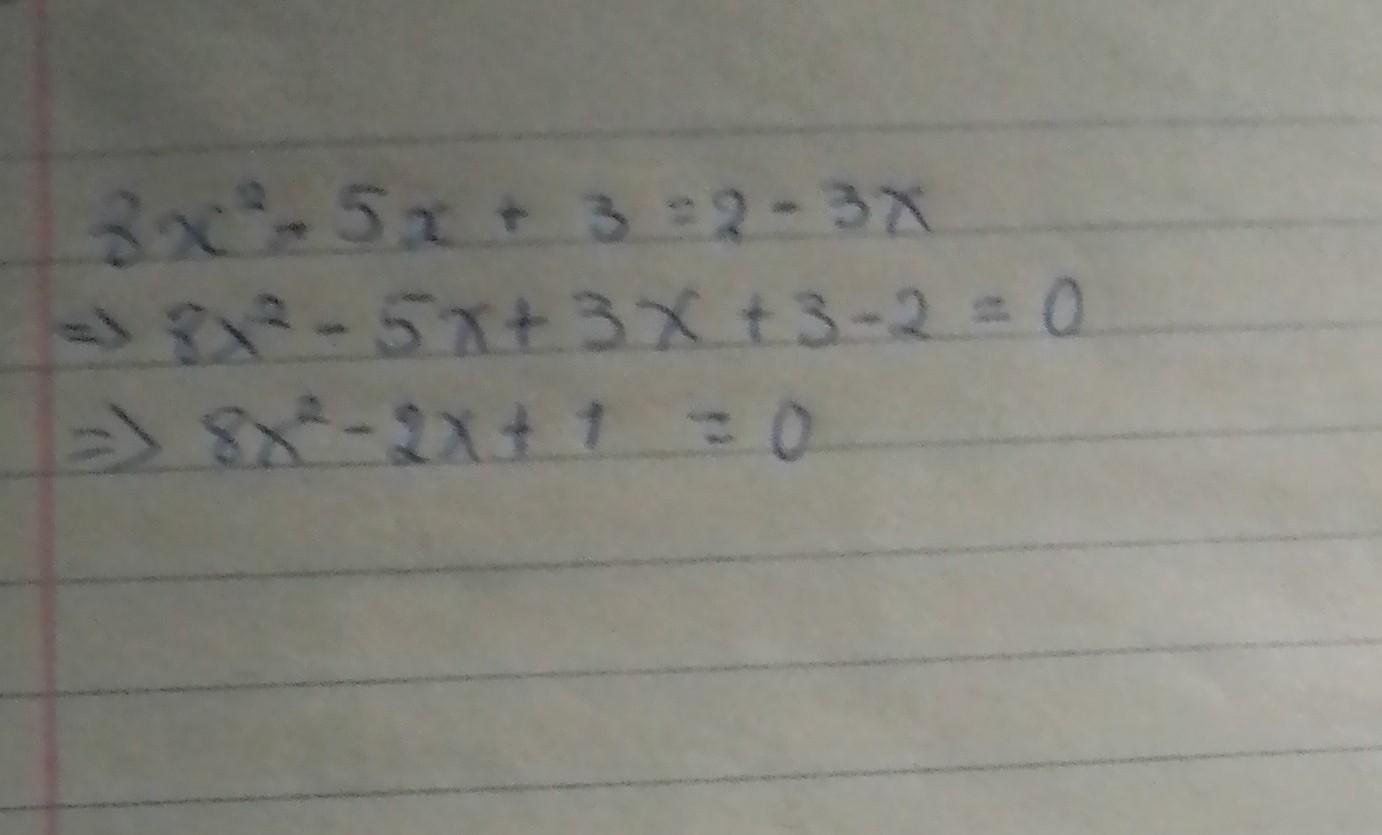 8x² - 5x + 3 = 2 - 3x
=> 8x² - 5x + 3x + 3 - 2 = 0
=> 8x² - 2x + 1 = 0